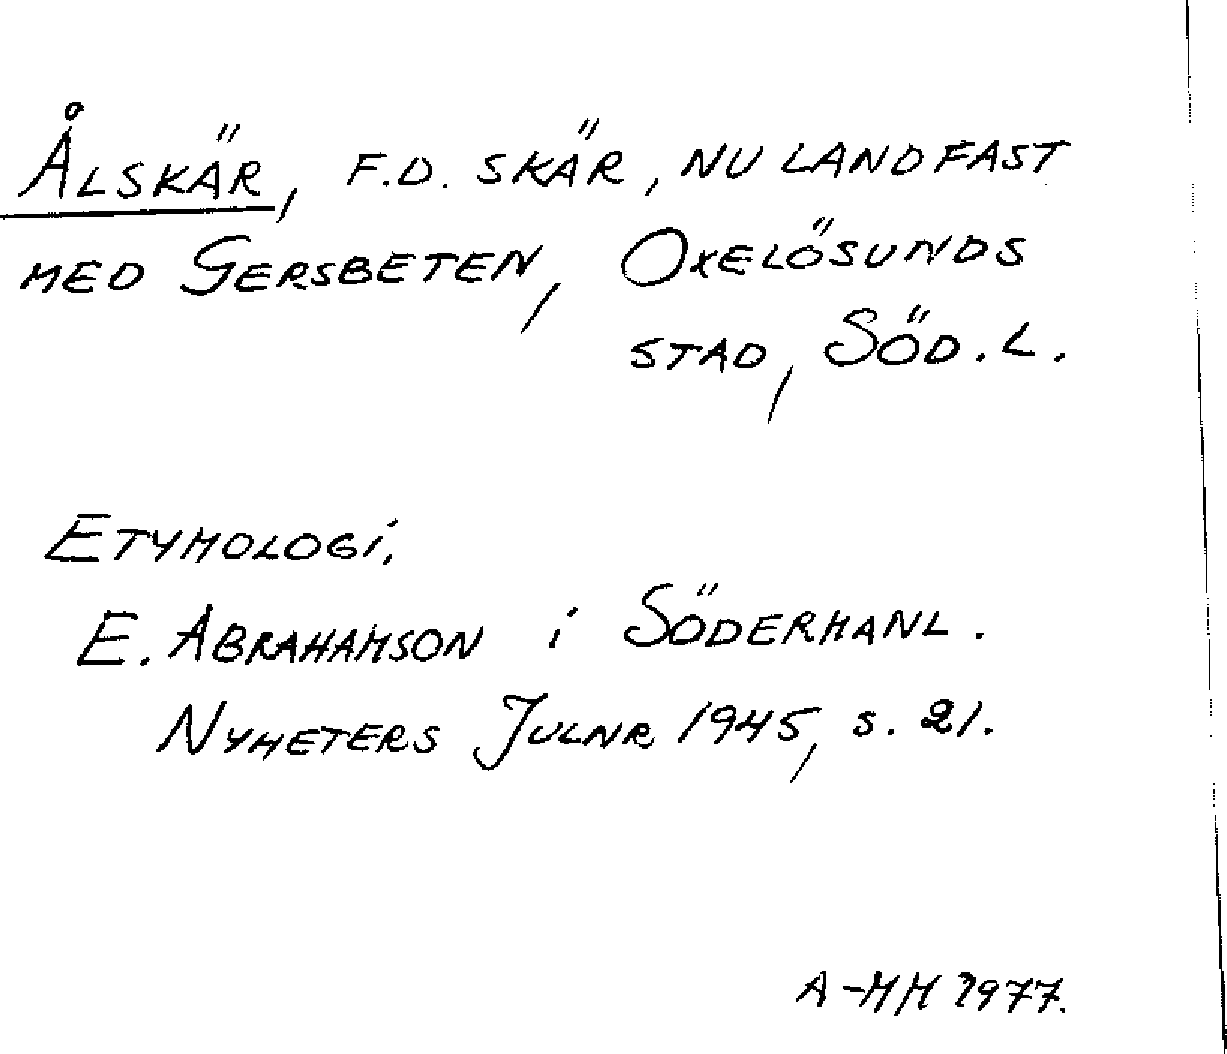 Ålskär, f.d. skär, nu landfast
med Gersbeten, Oxelösunds
stad, Söd. l.
Etymologi.
E. Abrahamson i Södermanl.
Nyheters Julnr 1945, s. 21.
A-MM 1977.